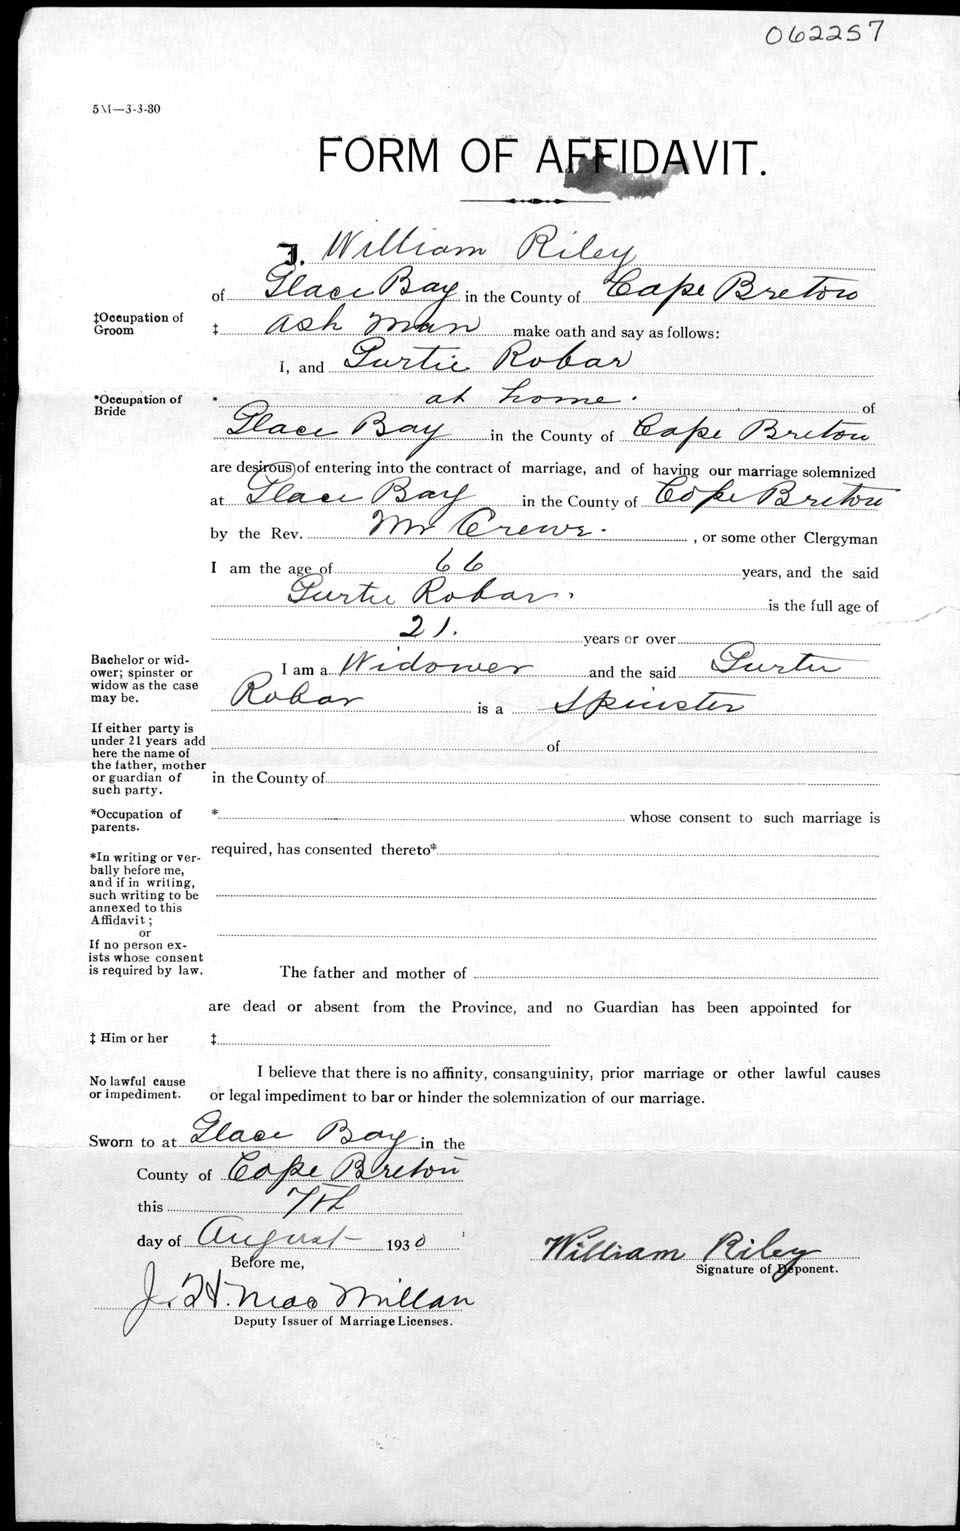 062257
5M—3-3-30
FORM OF AFFIDAVIT.
I, William Riley
of Glace Bay in the County of Cape Breton
‡Occupation of Groom ‡ Ash Man make oath and say as follows:
I, and Gurtie Robar
*Occupation of Bride * at home. of
Glace Bay in the County of Cape Breton
are desirous of entering into the contract of marriage, and of having our marriage solemnized
at Glace Bay in the County of Cape Breton
by the Rev. Mr Crewe. , or some other Clergyman
I am the age of 66 years, and the said
Gurtie Robar. is the full age of
21. years or over
Bachelor or wid-
ower; spinster or
widow as the case
may be.
I am a Widower and the said Gurtie
Robar is a Spinster
If either party is
under 21 years add
here the name of
the father, mother
or guardian of
such party.
of
in the County of
*Occupation of
parents.
* whose consent to such marriage is
required, has consented thereto*
*In writing or ver-
bally before me,
and if in writing,
such writing to be
annexed to this
Affidavit;
or
If no person ex-
ists whose consent
is required by law.
The father and mother of
are dead or absent from the Province, and no Guardian has been appointed for
‡ Him or her ‡
No lawful cause
or impediment.
I believe that there is no affinity, consanguinity, prior marriage or other lawful causes
or legal impediment to bar or hinder the solemnization of our marriage.
Sworn to at Glace Bay in the
County of Cape Breton
this 7th
day of August 1930
Before me,
William Riley
Signature of Deponent.
J. H. MacMillan
Deputy Issuer of Marriage Licenses.